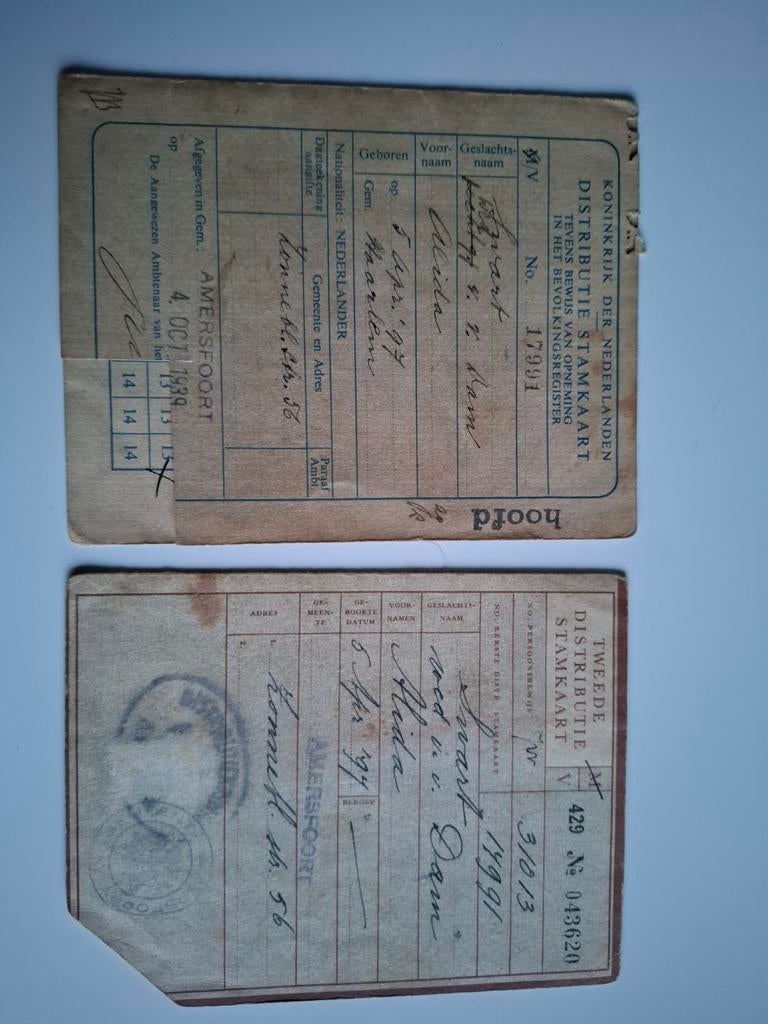 KONINKRIJK DER NEDERLANDEN
DISTRIBUTIE STAMKAART
TEVENS BEWIJS VAN OPNEMING
IN HET BEVOLKINGSREGISTER
M/V No. 17991
Geslachtsnaam Swart
wed. v. v. Dam
Voornaam Alida
Geboren op 5 Apr. '97
Gem. Haarlem
Nationaliteit: NEDERLANDER
Dagteekening aangifte Gemeente en Adres Paraaf Ambt.
Zonnebl.str. 56
Afgegeven in Gem.: AMERSFOORT
op 4 OCT. 1939
De Aangewezen Ambtenaar van het
13 13 13
14 14 14
hoofd
TWEEDE
DISTRIBUTIE
STAMKAART
M
V
429 No 043620
NO. PERSOONSBEWIJS 31013
NO. EERSTE DISTR. STAMKAART 17991
GESLACHTSNAAM Swart
wed. v. v. Dam
VOORNAMEN Alida
GEBOORTEDATUM 5 Apr 197
BEROEP
GEMEENTE AMERSFOORT
ADRES 1. Zonnebl. str. 56
2.